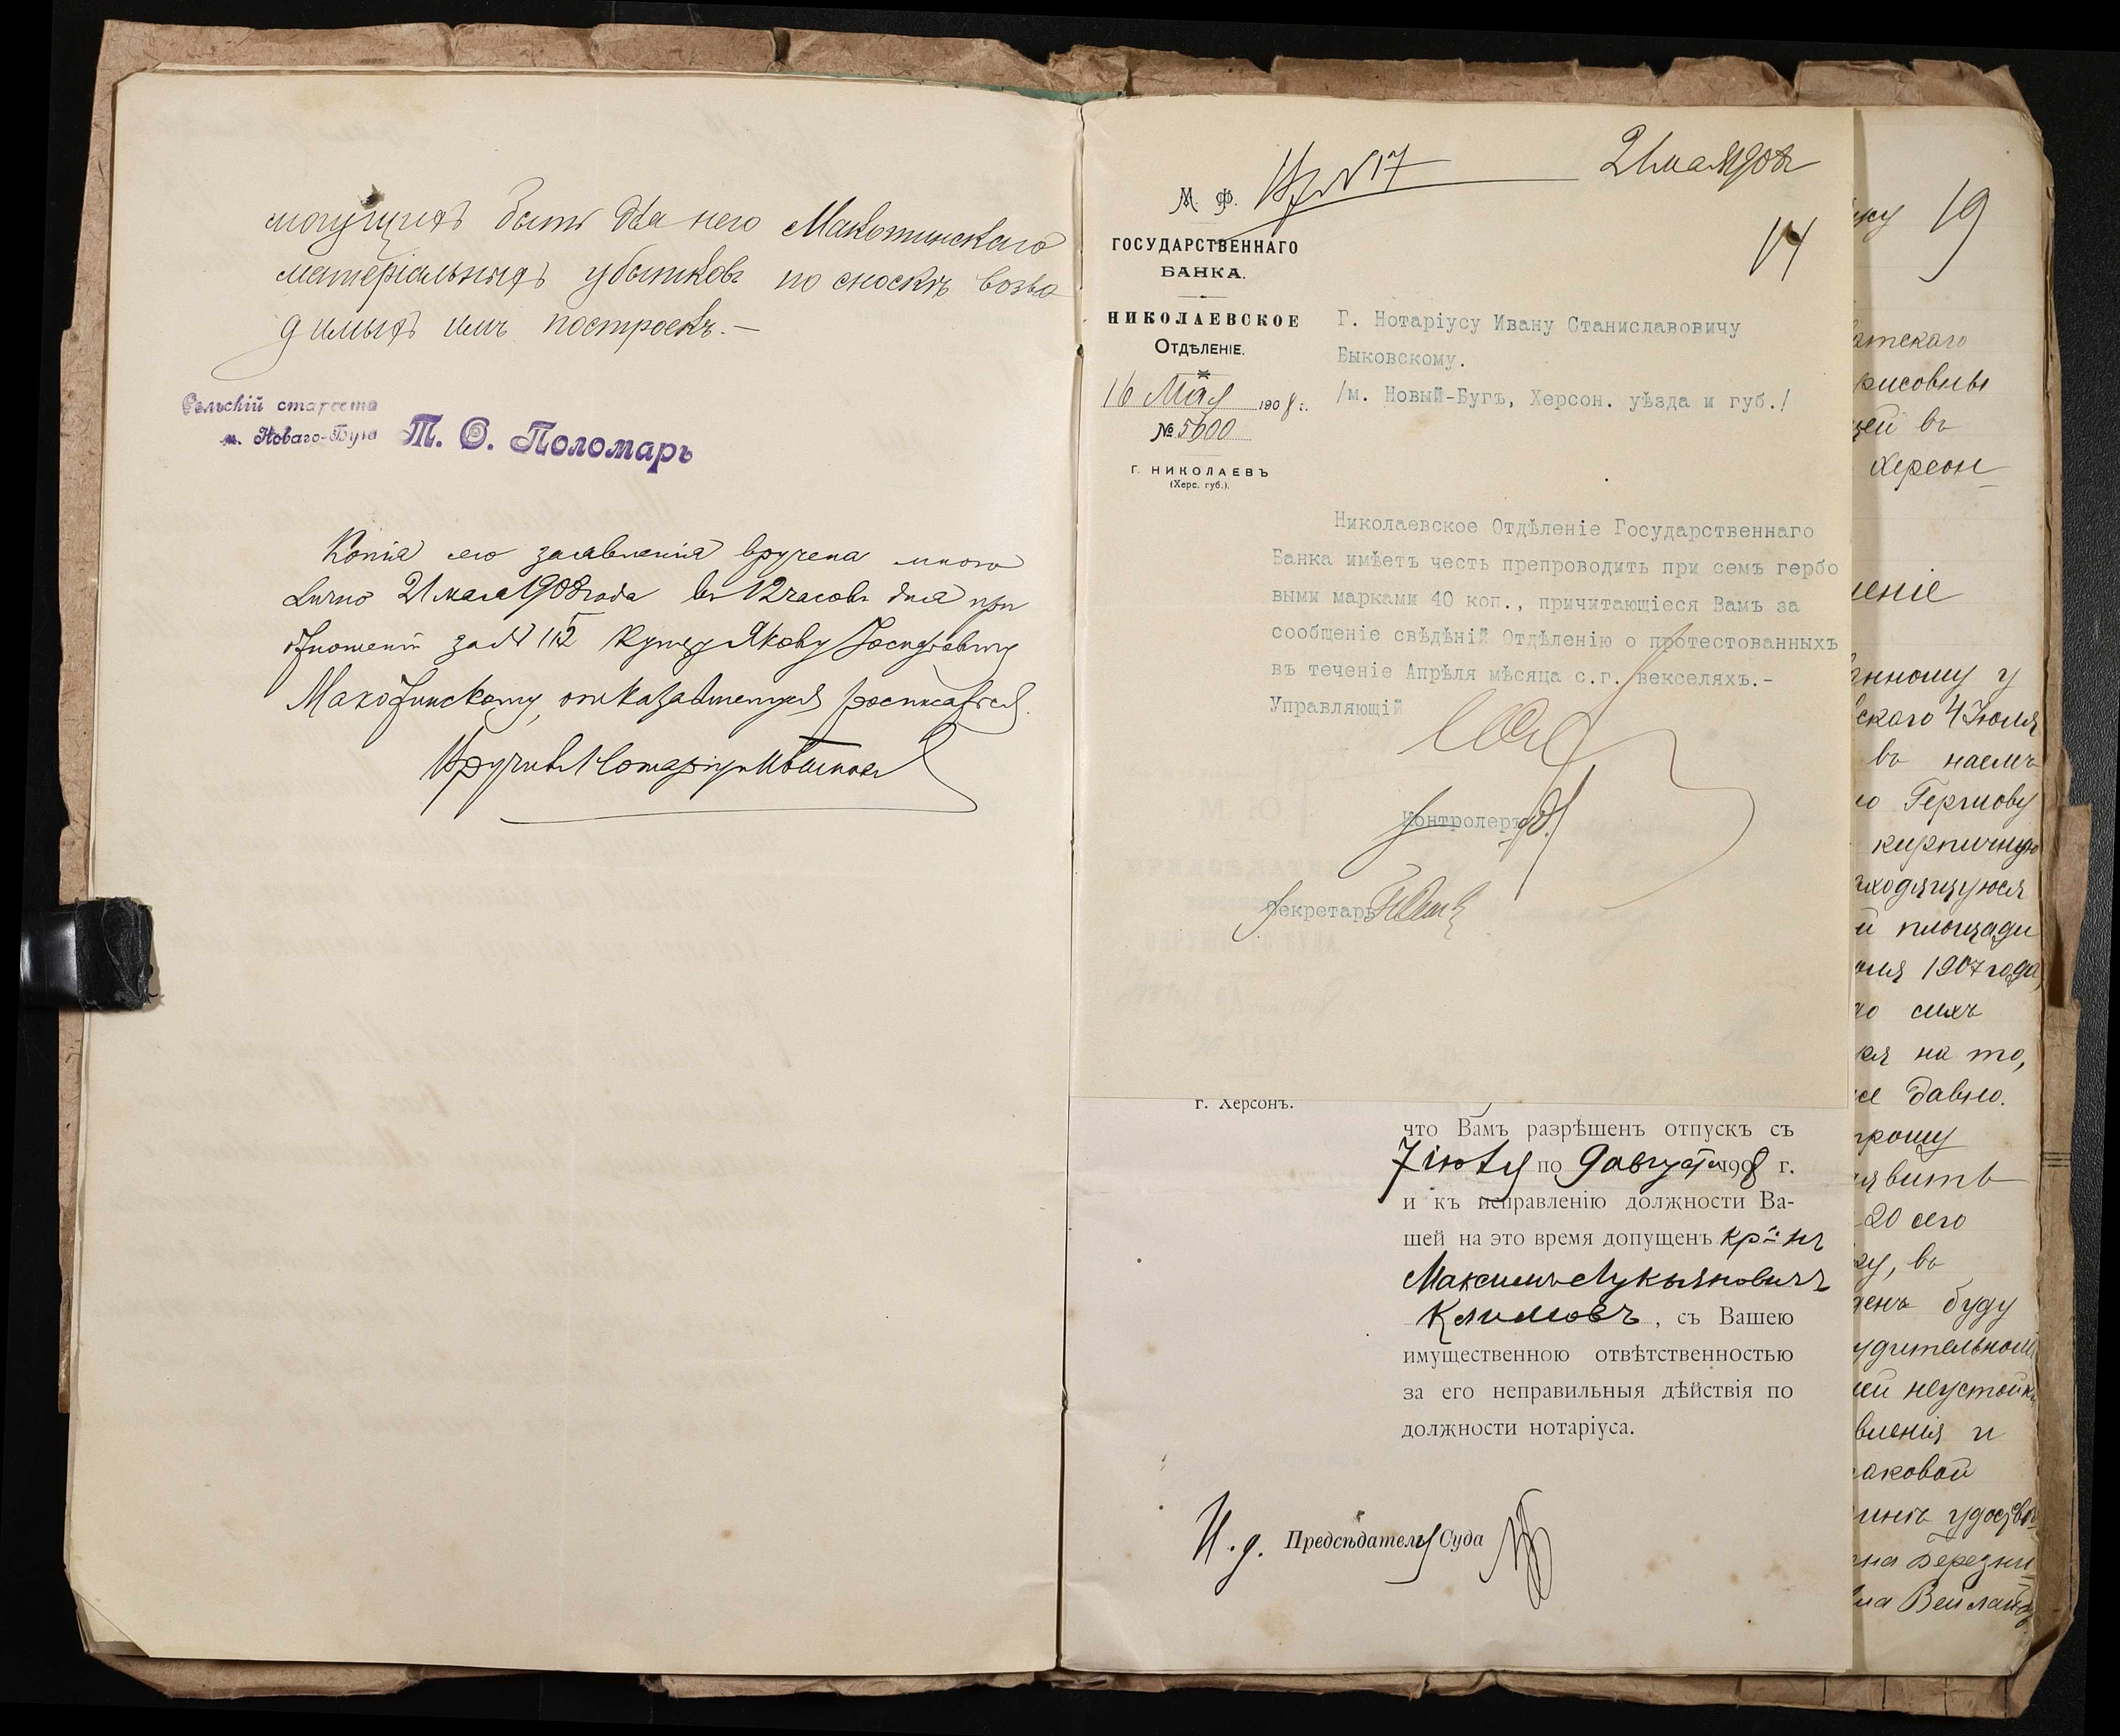 могущихъ быть для него Махотинскаго
матеріальныхъ убытковъ по сноскѣ возво
димыхъ имъ построекъ.—
Сельскій староста
м. Новаго-Буга Т. С. Поломарь
Копія сего заявленія вручена мною
лично 21 мая 1908 года въ 12 часовъ дня при
отношеніи за № 112 купцу Якову Іосифовичу
Махотинскому, отказавшемуся росписаться.
Вручилъ Нотаріусъ
№ 17
21 мая 1908
М. Ф.
14
ГОСУДАРСТВЕННАГО
БАНКА.
НИКОЛАЕВСКОЕ
Отдѣленіе.
16 Мая 1908 г.
№ 5600
Г. НИКОЛАЕВЪ
(Херс. губ.).
Г. Нотаріусу Ивану Станиславовичу
Быковскому.
/м. Новый-Бугъ, Херсон. уѣзда и губ./
Николаевское Отдѣленіе Государственнаго
Банка имѣетъ честь препроводить при семъ гербо
выми марками 40 коп., причитающіеся Вамъ за
сообщеніе свѣдѣній Отдѣленію о протестованныхъ
въ теченіе Апрѣля мѣсяца с.г. векселяхъ.-
Управляющій
Контролеръ
Секретарь
г. Херсонъ.
что Вамъ разрѣшенъ отпускъ съ
7 іюля по 9 августа 1908 г.
и къ исправленію должности Ва-
шей на это время допущенъ кр-нъ
Максимъ Лукьяновичъ
Климовъ, съ Вашею
имущественною отвѣтственностью
за его неправильныя дѣйствія по
должности нотаріуса.
И. д. Предсѣдателя Суда
19
атскаго
рисовны
щей въ
Херсон-
ленію
анному у
скаго 4 Іюля
въ наемъ
Гершову
кирпичную
находящуюся
й площади
юля 1907 года,
до сихъ
на то,
давно.
прошу
явить
20 сего
въ
день буду
удительной
ей неустойки
вленія и
таковой